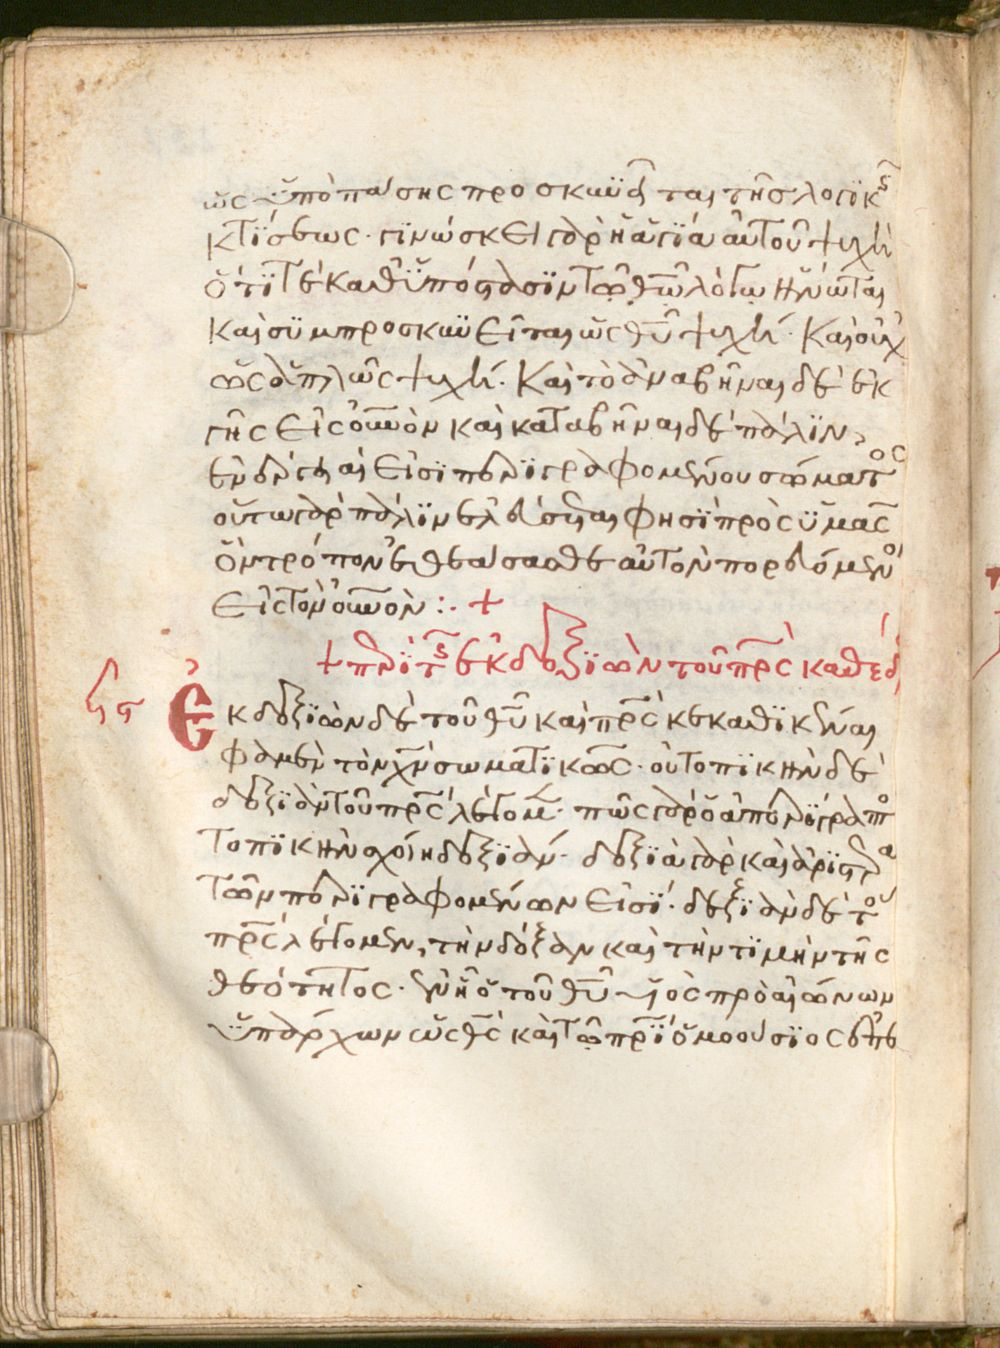 ὡς ὑπὸ πάσης προσκυνῆται τῆς λογικῆς
κτίσεως· γινώσκει γὰρ ἡ ἁγία αὐτοῦ ψυχὴ
ὅτί τε καθ' ὑπόστασιν τῷ θῶ λόγω ἥνωται
καὶ συμπροσκυνεῖται ὡς θῦ ψυχή· καὶ οὐχ
ὡς ἁπλῶς ψυχή· Καὶ τὸ ἀναβῆναι δὲ ἐκ
γῆς εἰς οὐνὸν καὶ καταβῆναι δὲ πάλιν,
ἐνέργειαι εἰσὶ περιγραφομένου σώματος
οὕτω γὰρ πάλιν ἐλεύσεται φησὶ πρὸς ὑμᾶς
ὃν τρόπον ἐθεάσασθε αὐτὸν πορευόμενον
εἰς τὸν οὐνὸν :· +
+ περὶ τῆς ἐκ δεξιῶν τοῦ πρς καθέδ
Ἐκ δεξιῶν δὲ τοῦ θῦ καὶ πρς κεκαθικέναι
φαμὲν τὸν χν σωματικῶς· οὐ τοπικὴν δὲ
δεξιὰν τοῦ πρς λέγομεν· πῶς γὰρ ὁ ἀπερίγραπτο
τοπικὴν σχοίη δεξιάν· δεξιὰ γὰρ καὶ ἀριστερὰ
τῶν περιγραφομένων εἰσί· δεξιὰν δὲ τοῦ
πρς λέγομεν, τὴν δόξαν καὶ τὴν τιμὴν τῆς
θεότητος· ἐν ἧ ὁ τοῦ θῦ υἱὸς πρὸ αἰώνων
ὑπάρχων ὡς θς καὶ τῷ πρὶ ὁμοούσιος ἐπ' ἐ